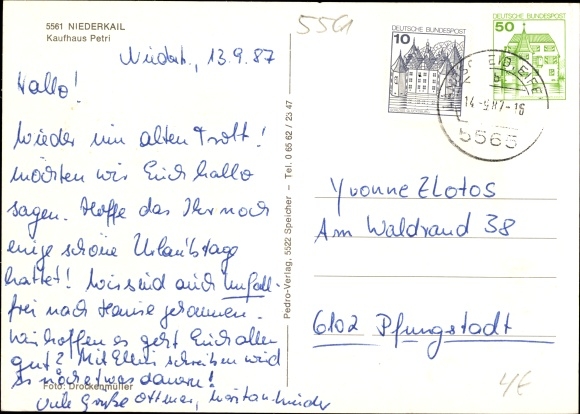 5561 NIEDERKAIL
Kaufhaus Petri
5561
13.9.87
Hallo!
Wieder im alten Trott!
möchten wir Euch hallo
sagen. Hoffe das Ihr noch
einige schöne Urlaubstage
hattet! Wir sind auch unfall-
frei nach Hause gekommen.
Wir hoffen es geht Euch allen
gut? Mit Ellis schreiben wird
es noch etwas dauern!
Viele Grüße Ottmar,
Foto: Drockenmüller
Pedro-Verlag, 5522 Speicher – Tel. 0 65 62 / 23 47
DEUTSCHE BUNDESPOST
10
DEUTSCHE BUNDESPOST
50
b
14.-9.87-16
5565
Yvonne Zlotos
Am Waldrand 38
6102 Pfungstadt
4€